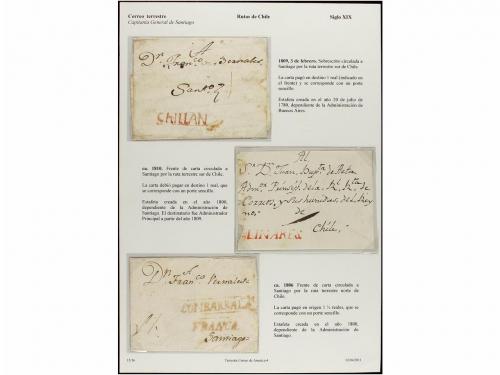 Correo terrestre
Capitanía General de Santiago
Rutas de Chile
Siglo XIX
A
Dn. Franco Bernales
Santo
CHILLAN
1809, 3 de febrero. Sobrescrito circulada a
Santiago por la ruta terrestre sur de Chile.
La carta pagó en destino 1 real (indicado en
el frente) y se corresponde con un porte
sencillo.
Estafeta creada en el año 20 de julio de
1780, dependiente de la Administración de
Buenos Aires.
ca. 1810. Frente de carta circulada a
Santiago por la ruta terrestre sur de Chile.
La carta debió pagar en destino 1 real, que
se corresponde con un porte sencillo.
Estafeta creada en el año 1800,
dependiente de la Administración de
Santiago. El destinatario fue Administrador
Principal a parte del año 1809.
Al
Sr. Dn. Juan Bapta. de
Admor. Princip. de la Rl. Rta. de
Correos, y sus
de
Chile.
LINARES
Dn. Franco Bernales
COMBARBALA
FRANCA
Santiago
ca. 1806 Frente de carta circulada a
Santiago por la ruta terrestre norte de
Chile.
La carta pagó en origen 1 ½ reales, que se
corresponde con un porte sencillo.
Estafeta creada en el año 1800,
dependiente de la Administración de
Santiago.